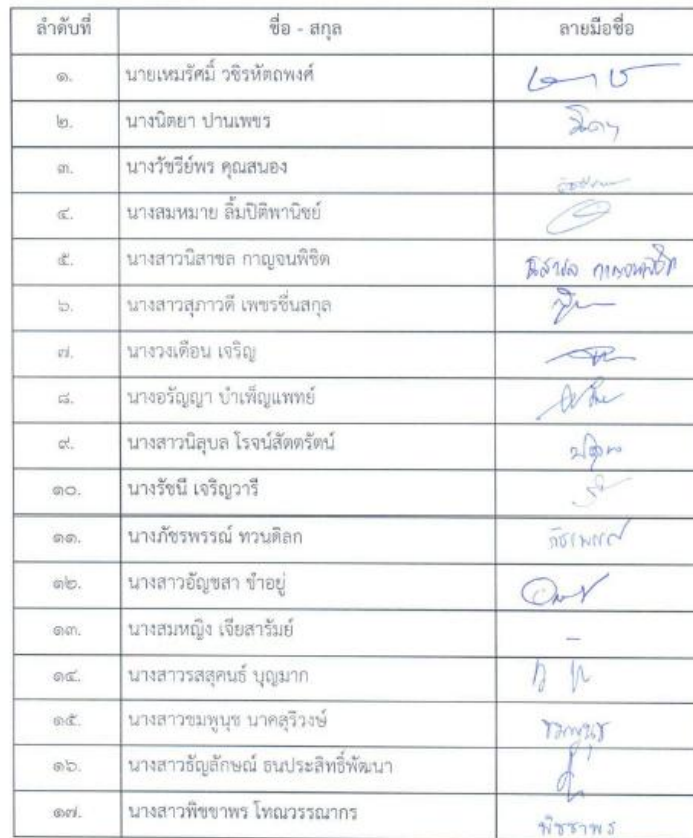 ลำดับที่ ชื่อ - สกุล ลายมือชื่อ
๑. นายเหมรัศมิ์ วชิรหัตถพงศ์
๒. นางนิตยา ปานเพชร
๓. นางวัชรีย์พร คุณสนอง
๔. นางสมหมาย ลิ้มปิติพานิชย์
๕. นางสาวนิสาชล กาญจนพิชิต นิสาชล กาญจนพิชิต
๖. นางสาวสุภาวดี เพชรชื่นสกุล
๗. นางวงเดือน เจริญ
๘. นางอรัญญา บำเพ็ญแพทย์
๙. นางสาวนิลุบล โรจน์สัตตรัตน์
๑๐. นางรัชนี เจริญวารี
๑๑. นางภัชรพรรณ์ ทวนดิลก
๑๒. นางสาวอัญชสา ขำอยู่
๑๓. นางสมหญิง เจียสารัมย์ -
๑๔. นางสาวรสสุคนธ์ บุญมาก
๑๕. นางสาวชมพูนุช นาคสุริวงษ์ ชมพูนุช
๑๖. นางสาวธัญลักษณ์ ธนประสิทธิ์พัฒนา
๑๗. นางสาวพิชชาพร โทณวรรณากร พิชชาพร